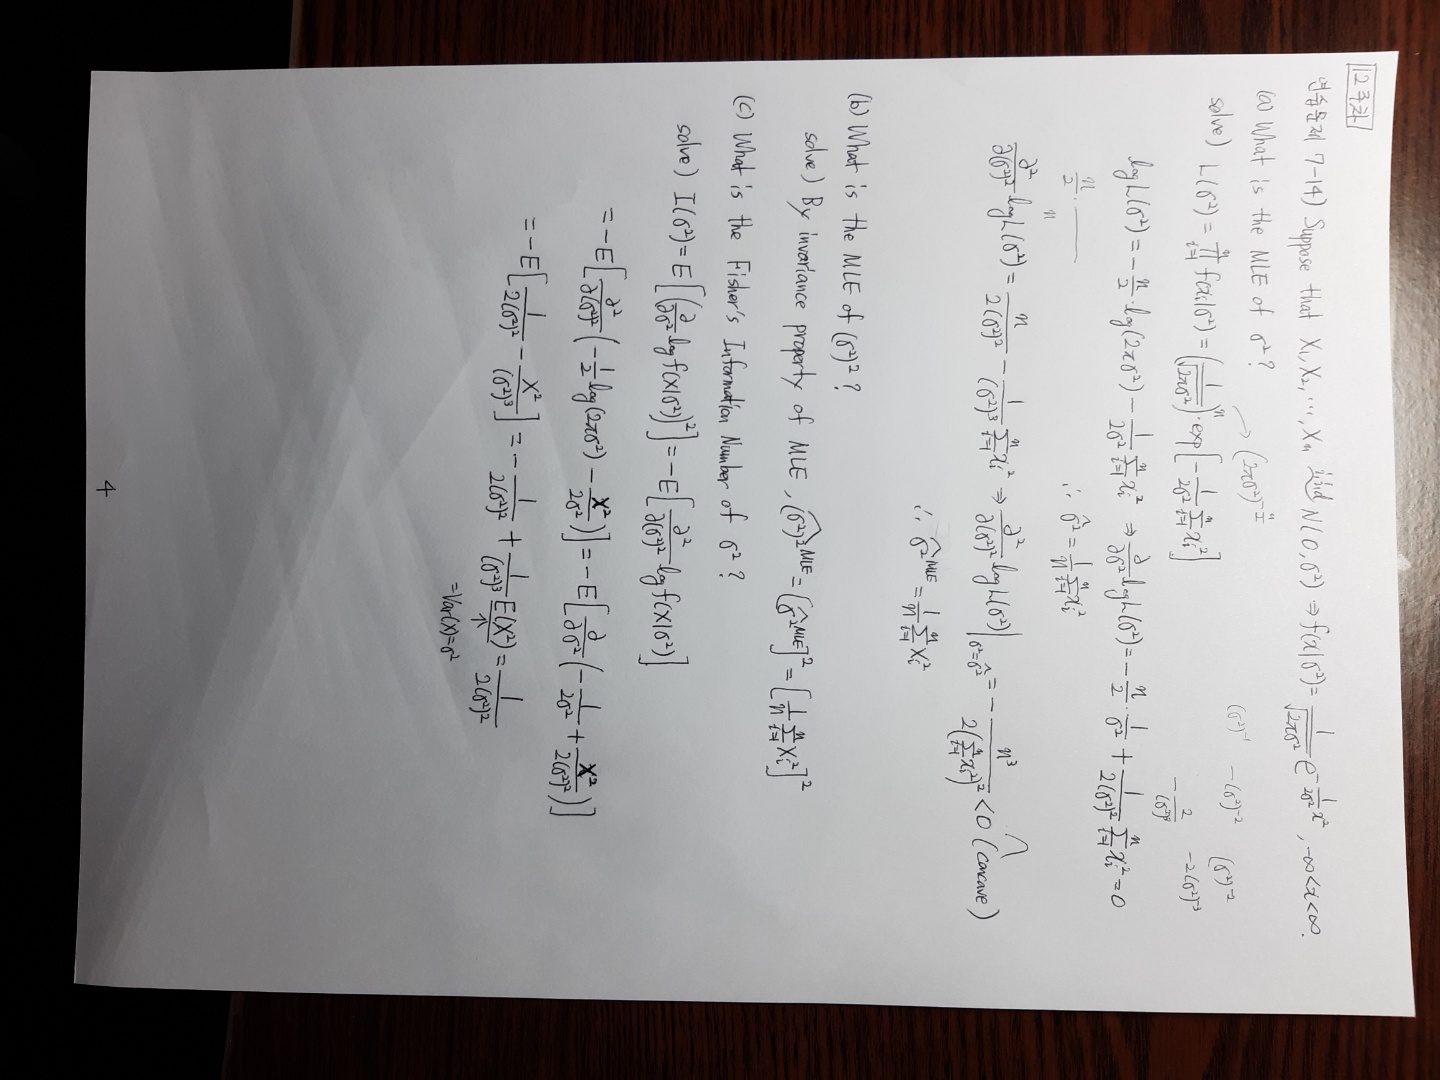 12주차
연습문제 7-14) Suppose that X₁, X₂, ⋯, Xₙ iid N(0, σ²) ⇒ f(x|σ²) = 1/√(2πσ²) e^(-1/(2σ²) x²), -∞<x<∞.
(a) What is the MLE of σ²?
→ (2πσ²)^(-n/2)
(σ²)⁻¹ -(σ²)⁻² (σ²)⁻²
solve) L(σ²) = ∏_{i=1}^n f(xᵢ|σ²) = (1/√(2πσ²))ⁿ · exp[-1/(2σ²) Σ_{i=1}^n xᵢ²]
-2/(σ²)³ -2(σ²)⁻³
log L(σ²) = -n/2 log(2πσ²) - 1/(2σ²) Σ_{i=1}^n xᵢ² ⇒ ∂/∂σ² log L(σ²) = -n/2 · 1/σ² + 1/(2(σ²)²) Σ_{i=1}^n xᵢ² = 0
n/2 · n
∴ σ̂² = 1/n Σ_{i=1}^n xᵢ²
∂²/∂(σ²)² log L(σ²) = n/(2(σ²)²) - 1/(σ²)³ Σ_{i=1}^n xᵢ² ⇒ ∂²/∂(σ²)² log L(σ²)|_{σ²=σ̂²} = - n³/(2(Σ_{i=1}^n xᵢ²)²) < 0 (concave)
∴ σ̂²^MLE = 1/n Σ_{i=1}^n Xᵢ²
(b) What is the MLE of (σ²)²?
solve) By invariance property of MLE, (σ²)²^MLE = [σ̂²^MLE]² = [1/n Σ_{i=1}^n Xᵢ²]²
(c) What is the Fisher's Information Number of σ²?
solve) I(σ²) = E[(∂/∂σ² log f(X|σ²))²] = -E[∂²/∂(σ²)² log f(X|σ²)]
= -E[∂²/∂(σ²)² (-1/2 log(2πσ²) - X²/(2σ²))] = -E[∂/∂σ² (-1/(2σ²) + X²/(2(σ²)²))]
= -E[1/(2(σ²)²) - X²/(σ²)³] = -1/(2(σ²)²) + 1/(σ²)³ E(X²) = 1/(2(σ²)²)
= Var(X) = σ²
4